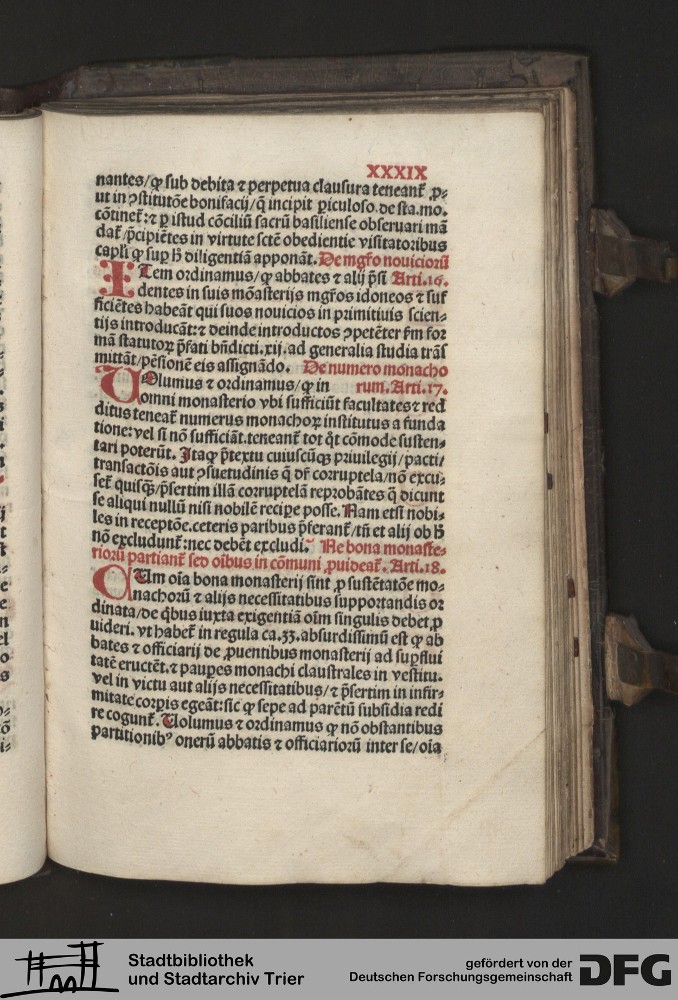 XXXIX
nantes/ꝙ sub debita ⁊ perpetua clausura teneant᷑ ꝓ⸗
ut in ꝯstitutōe bonifacij/q̄ incipit ꝑiculoso.de sta.mo.
cōtinet᷑:⁊ ꝑ istud cōciliū sacrū basiliense obseruari mā
dat᷑/p̄cipiētes in virtute sctē obedientie visitatoribus
capl̓i ꝙ suꝑ h̄ diligentiā apponāt. De mgr̄o nouiciorū
ITem ordinamus/ꝙ abbates ⁊ alij p̄si Arti.16.
dentes in suis mōasterijs mgr̄os idoneos ⁊ suf
ficiētes habeāt qui suos nouicios in primitiuis scien⸗
tijs introducāt:⁊ deinde introductos ꝯpetēter ẜm for
mā statutoꝝ p̄fati bn̄dicti.xij.ad generalia studia trās
mittāt/pēsionē eis assignādo. De numero monacho
VOlumus ⁊ ordinamus/ꝙ in rum.Arti.17.
omni monasterio vbi sufficiūt facultates ⁊ red
ditus teneat᷑ numerus monachoꝝ institutus a funda
tione:vel si nō sufficiāt.teneant᷑ tot q̄t cōmode susten⸗
tari poterūt. Itaꝙ p̄textu cuiuscūqꝫ priuilegij/pacti/
transactōis aut ꝯsuetudinis q̄ dr̄ corruptela/nō excu⸗
set᷑ quisqꝫ/p̄sertim illā corruptelā reprobātes q̄ dicunt
se aliqui nullū nisi nobilē recipe posse. Nam etsi nobi⸗
les in receptōe.ceteris paribus p̄ferant᷑/tn̄ et alij ob h̄
nō excludunt᷑:nec debēt excludi. Ne bona monaste⸗
riorū partiant᷑ sed oībus in cōmuni ꝓuideat᷑. Arti.18.
CUm oīa bona monasterij sint ꝓ sustētatōe mo⸗
nachorū ⁊ alijs necessitatibus supportandis or
dinata/de q̄bus iuxta exigentiā oīm singulis debet ꝓ
uideri. vt habet᷑ in regula ca.33.absurdissimū est ꝙ ab
bates ⁊ officiarij de ꝓuentibus monasterij ad suꝑflui
tatē eructēt.⁊ pauꝑes monachi claustrales in vestitu.
vel in victu aut alijs necessitatibus/⁊ p̄sertim in infir⸗
mitate corꝑis egeāt:sic ꝙ sepe ad parētū subsidia redi
re cogunt᷑. Uolumus ⁊ ordinamus ꝙ nō obstantibus
partitionibꝰ onerū abbatis ⁊ officiariorū inter se/oīa
Stadtbibliothek
und Stadtarchiv Trier
gefördert von der
Deutschen Forschungsgemeinschaft
DFG